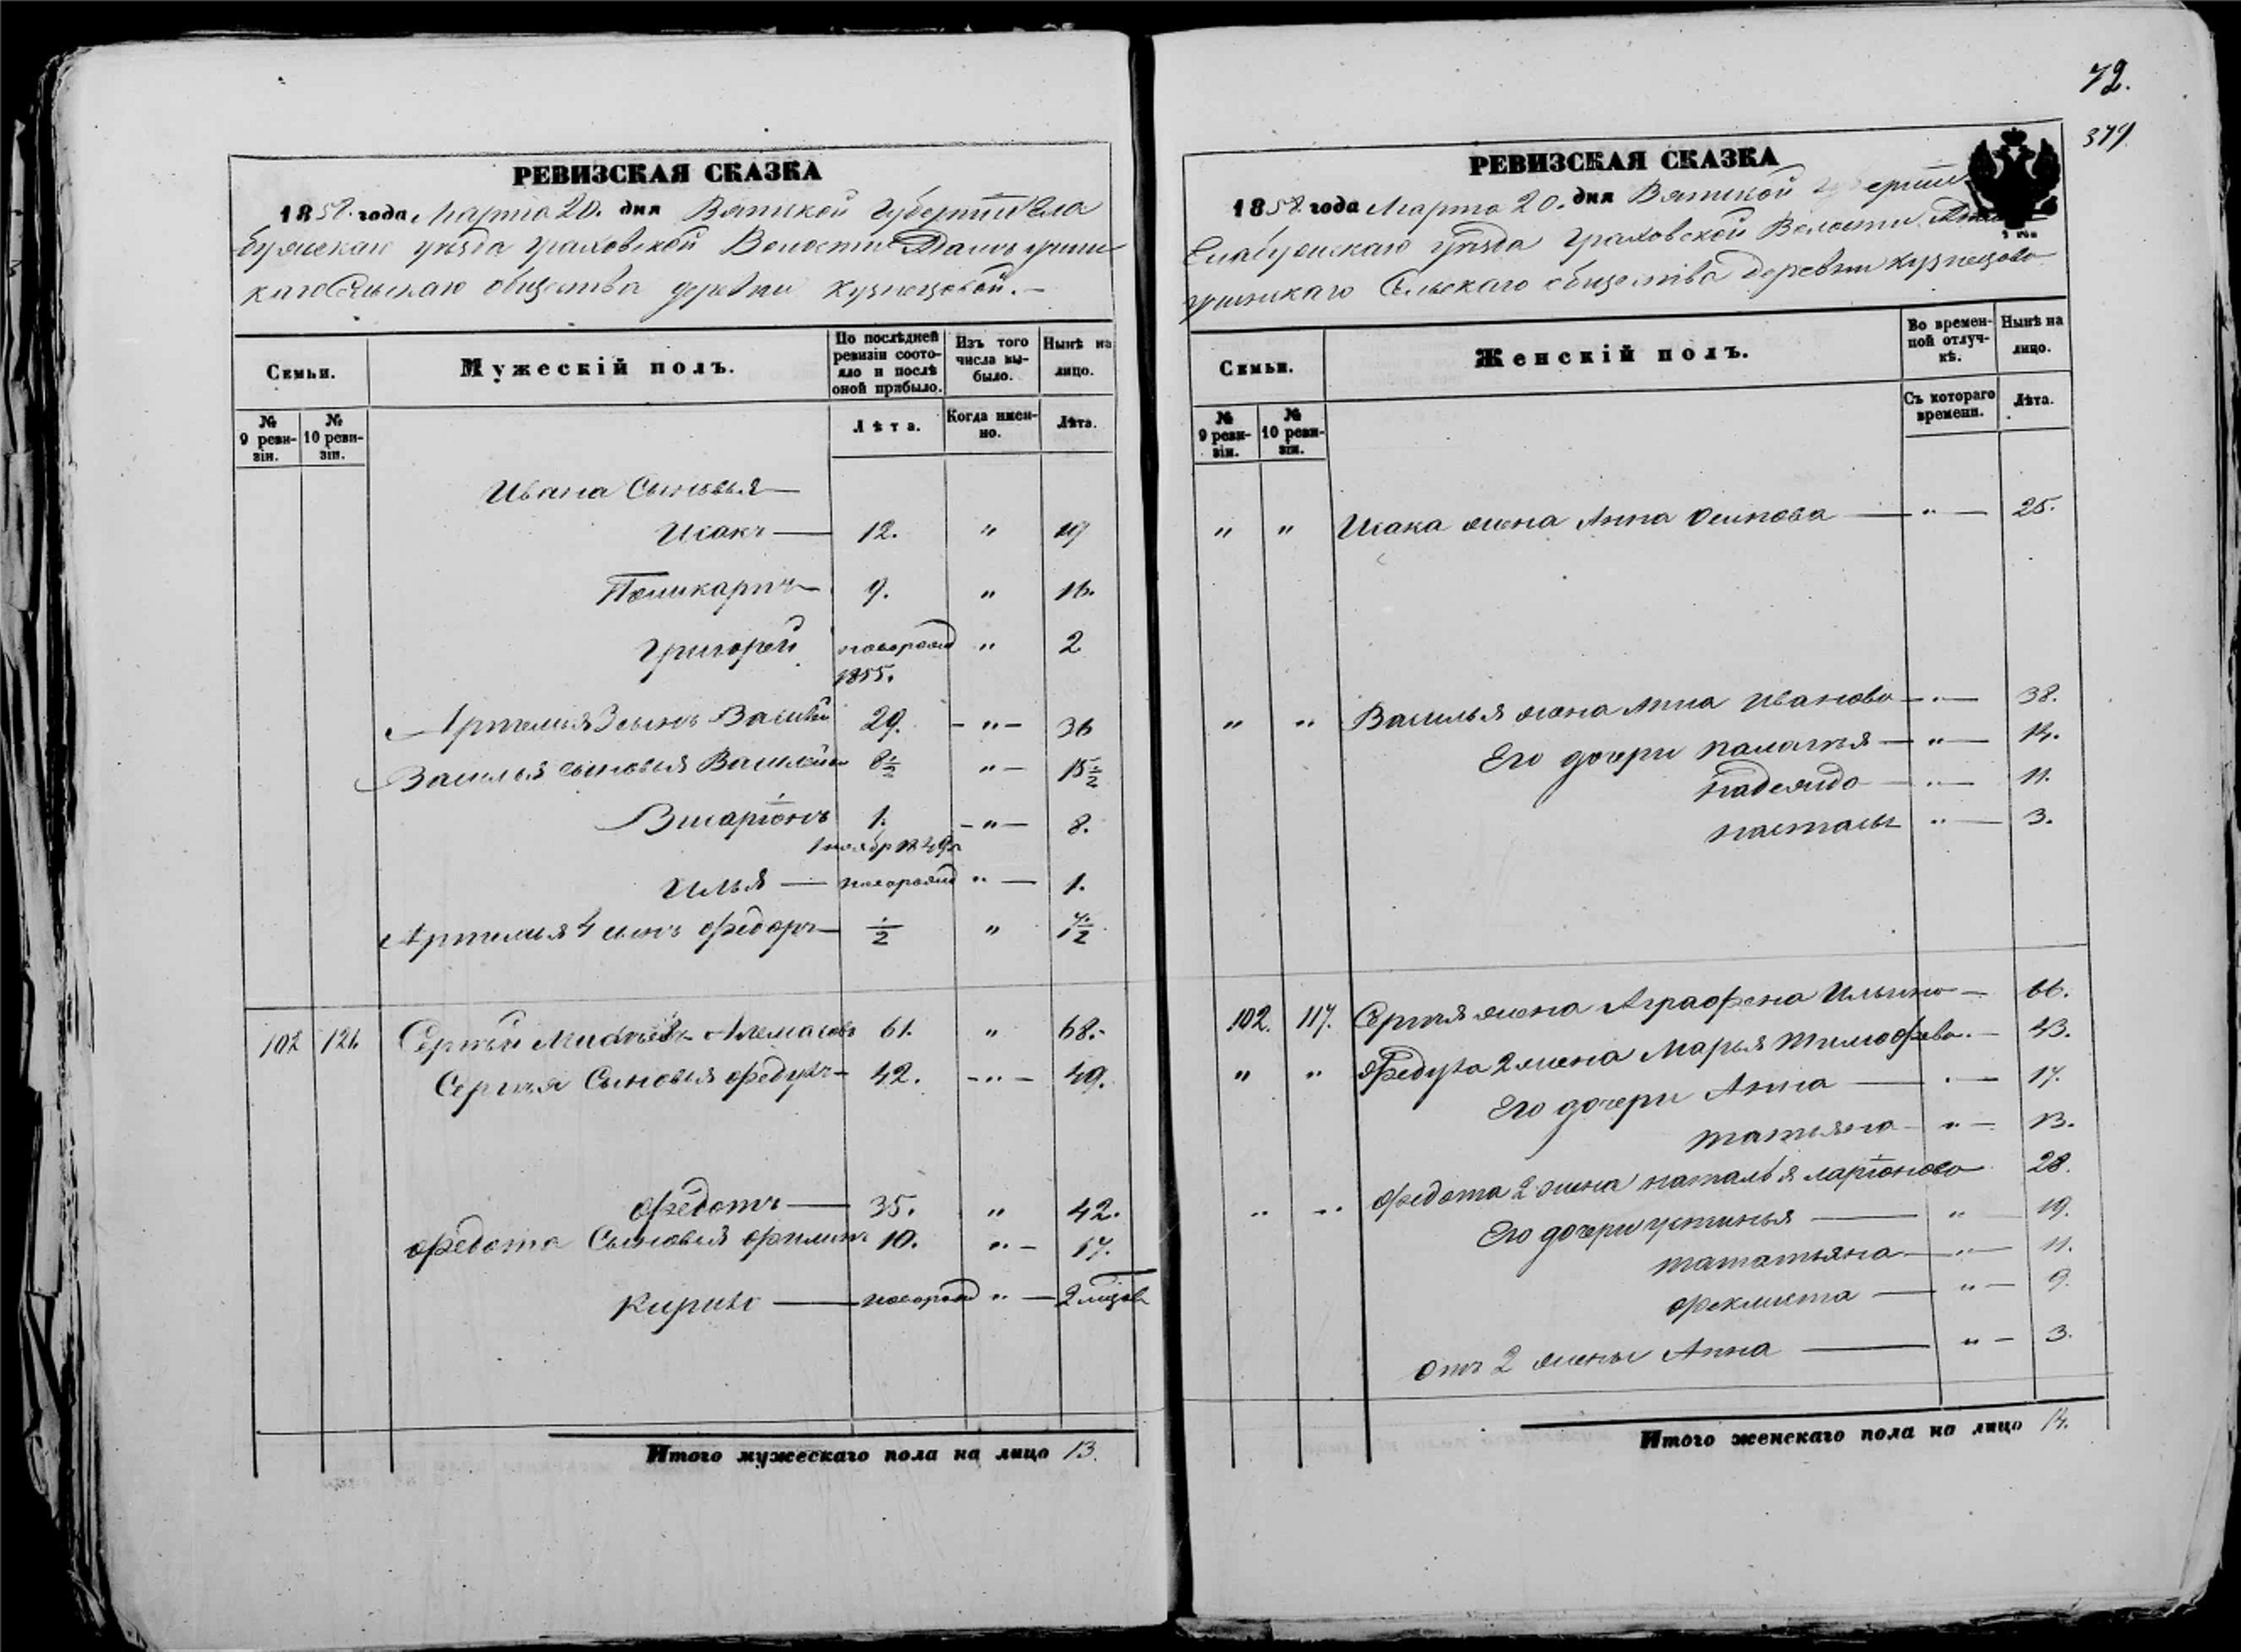 РЕВИЗСКАЯ СКАЗКА
1858 года Марта 20. дня Вятской Губерніи Ела
бужскаго уѣзда Граховской Волости
каго Сельскаго общества деревни Кузнецовой.
Семьи.
Мужескій полъ.
По послѣдней ревизіи состояло и послѣ оной прибыло.
Изъ того числа выбыло.
Нынѣ на лицо.
№ 9 ревизіи.
№ 10 ревизіи.
Лѣта.
Когда именно.
Лѣта.
Ивана Сыновья
Исакъ — 12. " 19
Поликарпъ 9. " 16.
Григорей новорожд 1855. " 2
Артемья 3 сынъ Василей 29. " 36
Василья сыновья Василей 8½ " 15½
Висаріонъ 1. " 8.
Илья — новорожд " 1.
Артемья 4 сынъ Федоръ ½ " 7½
102 121. Сергѣй Алемасовъ 61. " 68.
Сергѣя Сыновья Федулъ 42. " 49.
Федотъ — 35. " 42.
Федота Сыновья Филипъ 10. " 17.
Кирило — новорожд " 2
Итого мужескаго пола на лицо 13.
72.
379
РЕВИЗСКАЯ СКАЗКА
1858 года Марта 20. дня Вятской Губерніи
Елабужскаго уѣзда Граховской Волости
Сельскаго общества деревни Кузнецово
Семьи.
Женскій полъ.
Во временной отлучкѣ.
Нынѣ на лицо.
№ 9 ревизіи.
№ 10 ревизіи.
Съ котораго времени.
Лѣта.
" " Исака жена Анна Осипова — " — 25.
" " Василья жена Анна Иванова — " — 38.
Его дочери Палагея — " — 14.
Надежда — " — 11.
Настасья " — 3.
102. 117. Сергѣя жена Аграфена Ильина — 66.
" " Федула 2 жена Марья Тимофева. — 43.
Его дочери Анна — " — 17.
Татьяна — " — 13.
" " Федота 2 жена Наталья Ларіонова 28.
Его дочери Устинья — " — 19.
Тататьяна — " — 11.
Феклиста — " — 9.
Отъ 2 жены Анна — " — 3.
Итого женскаго пола на лицо 14.